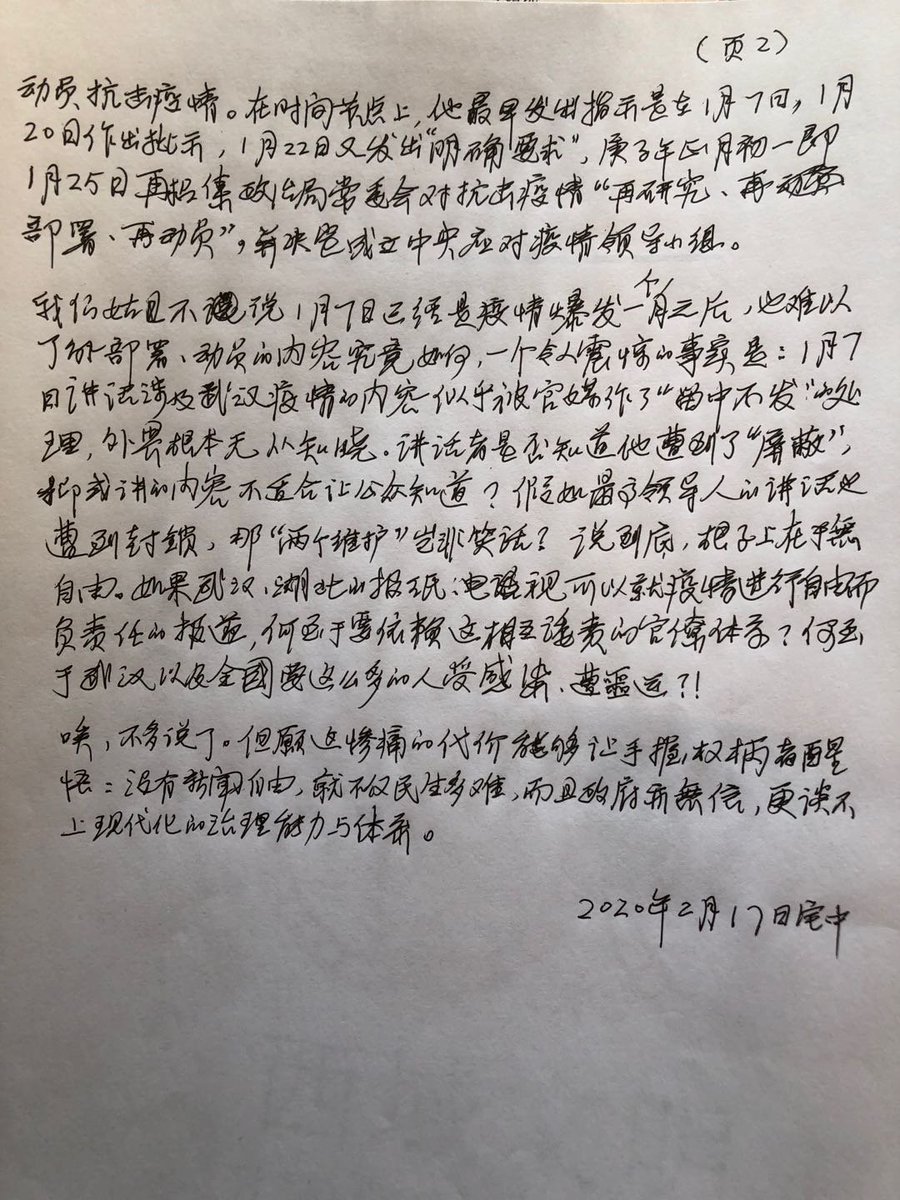 （页2）
动员抗击疫情。在时间节点上，他最早发出指示是在1月7日，1月
20日作出批示，1月22日又发出“明确要求”，庚子年正月初一即
1月25日再招集政治局常委会对抗击疫情“再研究、再
部署、再动员”，并决定成立中央应对疫情领导小组。
我们姑且不说1月7日已经是疫情爆发一个月之后，也难以
了解部署、动员的内容究竟如何，一个令人震惊的事实是：1月7
日讲话涉及武汉疫情的内容似乎被官媒作了“留中不发”的处
理，外界根本无从知晓。讲话者是否知道他遭到了“屏蔽”，
抑或讲的内容不适合让公众知道？假如最高领导人的讲话也
遭到封鎖，那“两个维护”岂非笑话？说到底，根子上在乎無
自由。如果武汉、湖北的报纸、电视可以就疫情进行自由而
负责任的报道，何至于要依赖这相互诿责的官僚体系？何至
于武汉以及全國要这么多的人受感染、遭噩运？！
唉，不多说了。但愿这惨痛的代价能够让手握权柄者醒
悟：没有新闻自由，就不仅民生多难，而且政府亦無信，更谈不
上现代化的治理能力与体系。
2020年2月17日宅中